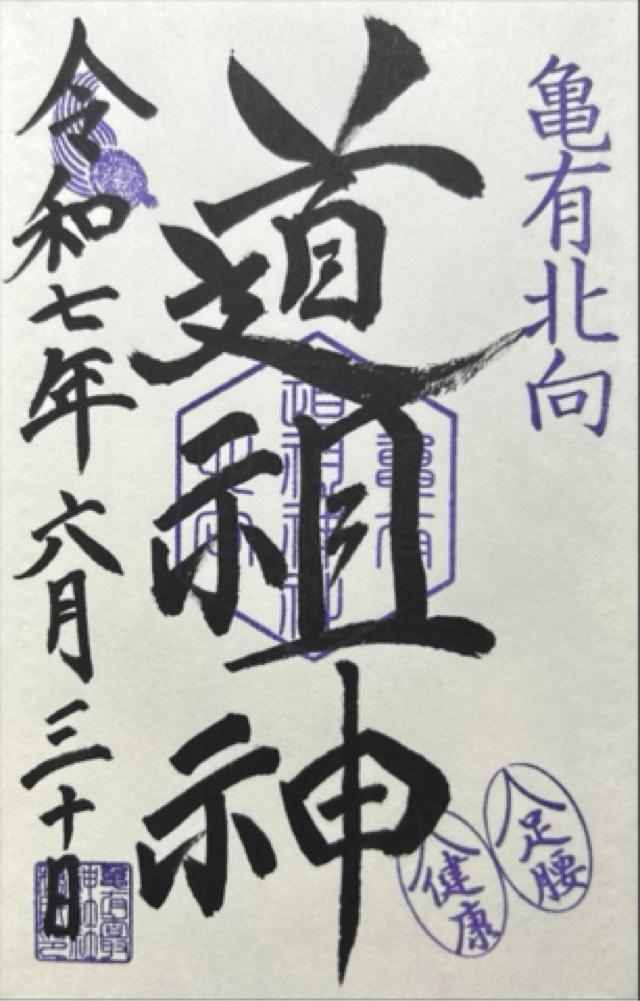 亀有北向
道祖神
足腰
健康
令和七年六月三十日